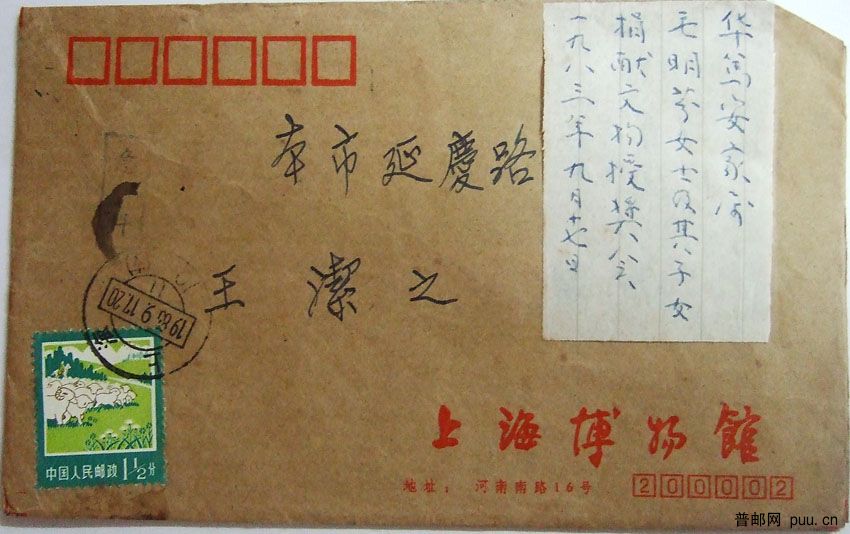 本市延慶路
王 潔之
华笃安家属
毛明芬女士及其子女
捐献文物授奖会
一九八三年九月十七日
1983.9.17.20
上海
中国人民邮政 1 1/2 分
上海博物館
地址: 河南南路16号 200002
普邮网 puu.cn